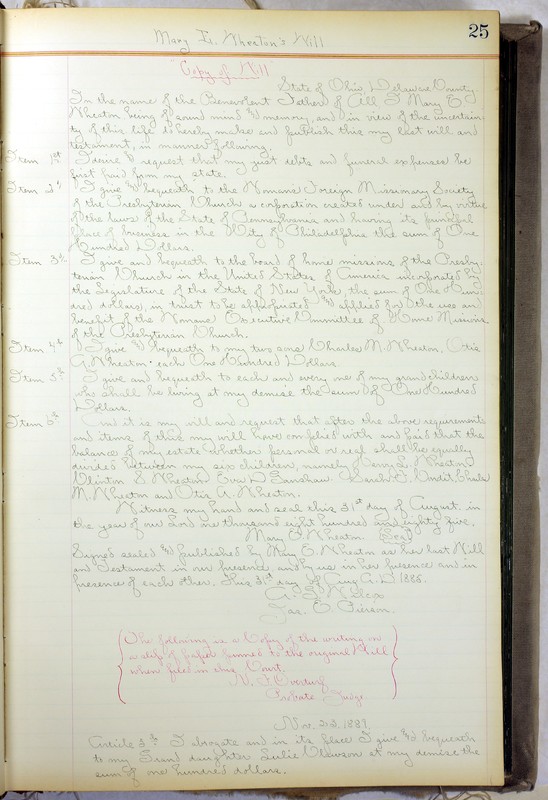 25
Mary E. Wheaton's Will
"Copy of Will"
State of Ohio, Delaware County.
In the name of the Benevolent Father of All I Mary E.
Wheaton being of sound mind & memory, and in view of the uncertain-
ty of this life do hereby make and publish this my last will and
testament, in manner following.
Item 1st I desire & request that my just debts and funeral expenses be
first paid from my state.
Item 2d I give & bequeath to the Womans Foreign Missionary Society
of the Presbyterian Church a corporation created under and by virtue
of the laws of the State of Pennsylvania and having its principal
place of business in the City of Philadelphia the sum of One
Hundred Dollars.
Item 3d I give and bequeath to the board of home missions of the Presby-
terian Church in the United States of America incorporated by
the Legislature of the State of New York, the sum of One Hun-
dred dollars, in trust to be appropriated & applied for the use an
benefit of the Womans Executive Committee of Home Missions
of the Presbyterian Church.
Item 4th I give & bequeath to my two sons Charles M. Wheaton, Otis
A. Wheaton each One Hundred Dollars
Item 5th I give and bequeath to each and every one of my grandchildren
who shall be living at my demise the sum of One Hundred
Dollars.
Item 6th And it is my will and request that after the above requirements
and items of this my will have complied with and paid that the
balance of my estate whether personal or real shall be equally
divided between my six children, namely Henry L. Wheaton
Clinton E Wheaton Eva D. Sarah Charles
M. Wheaton and Otis A. Wheaton.
Witness my hand and seal this 31st day of August, in
the year of our Lord one thousand eight hundred and eighty five.
Mary E. Wheaton {Seal}
Signed sealed & published by Mary E. Wheaton as her last Will
and Testament in our presence, and by us in her presence and in
presence of each other. This 31st day of Aug A.D. 1885.
A. L. Wilcox
Jas. O. Pierson.
The following is a Copy of the writing on
a slip of paper pinned to the original Will
when filed in this Court.
N. F. Overturf
Probate Judge
Nov. 23. 1887.
Article 3d I abrogate and in its place I give & bequeath
to my Grand daughter Julie Clawson at my demise the
sum of one hundred dollars.